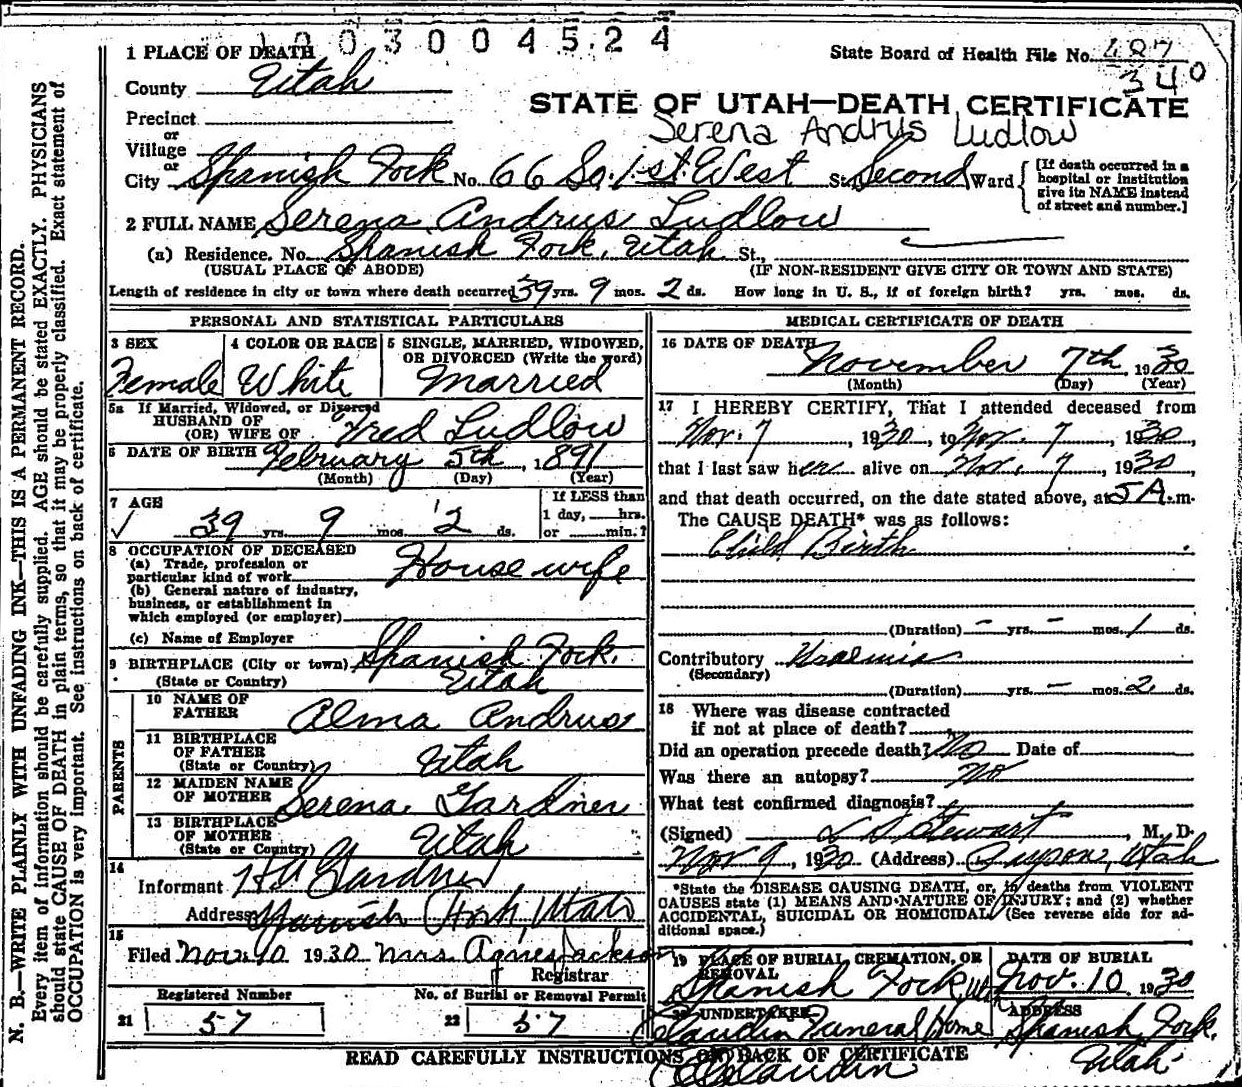 003004524
1 PLACE OF DEATH
State Board of Health File No. 487
340
County Utah
STATE OF UTAH—DEATH CERTIFICATE
Precinct
or
Serena Andrus Ludlow
Village
or
City Spanish Fork No. 66 So. 1st. West St. Second Ward
[If death occurred in a hospital or institution give its NAME instead of street and number.]
2 FULL NAME Serena Andrus Ludlow
(a) Residence. No. Spanish Fork, Utah St.,
(USUAL PLACE OF ABODE) (IF NON-RESIDENT GIVE CITY OR TOWN AND STATE)
Length of residence in city or town where death occurred 39 yrs. 9 mos. 2 ds. How long in U. S., if of foreign birth? yrs. mos. ds.
PERSONAL AND STATISTICAL PARTICULARS
3 SEX
Female
4 COLOR OR RACE
White
5 SINGLE, MARRIED, WIDOWED,
OR DIVORCED (Write the word)
Married
5a If Married, Widowed, or Divorced
HUSBAND OF
(OR) WIFE OF Fred Ludlow
6 DATE OF BIRTH February 5th, 1891
(Month) (Day) (Year)
7 AGE
39 yrs. 9 mos. 2 ds.
If LESS than
1 day, hrs.
or min.?
8 OCCUPATION OF DECEASED
(a) Trade, profession or
particular kind of work House wife
(b) General nature of industry,
business, or establishment in
which employed (or employer)
(c) Name of Employer
9 BIRTHPLACE (City or town) Spanish Fork.
(State or Country) Utah
PARENTS
10 NAME OF
FATHER Alma Andrus
11 BIRTHPLACE
OF FATHER
(State or Country) Utah
12 MAIDEN NAME
OF MOTHER Serena Gardner
13 BIRTHPLACE
OF MOTHER
(State or Country) Utah
14
Informant Gardner
Address Spanish Fork, Utah
15
Filed Nov 10 1930 Mrs. Agnes Jackson
Registrar
Registered Number
21 57
No. of Burial or Removal Permit
22 57
MEDICAL CERTIFICATE OF DEATH
16 DATE OF DEATH
November 7th, 1930
(Month) (Day) (Year)
17 I HEREBY CERTIFY, That I attended deceased from
Nov. 7, 1930, to Nov. 7, 1930,
that I last saw her alive on Nov. 7, 1930
and that death occurred, on the date stated above, at 5 A. m.
The CAUSE DEATH* was as follows:
Child Birth
(Duration) - yrs. - mos. 1 ds.
Contributory Uraemia
(Secondary)
(Duration) yrs. - mos. 2 ds.
18 Where was disease contracted
if not at place of death?
Did an operation precede death? No Date of
Was there an autopsy? No
What test confirmed diagnosis?
(Signed) Stewart, M. D.
Nov 9, 1930 (Address) Payson, Utah
*State the DISEASE CAUSING DEATH, or, in deaths from VIOLENT
CAUSES state (1) MEANS AND NATURE OF INJURY; and (2) whether
ACCIDENTAL, SUICIDAL OR HOMICIDAL. (See reverse side for ad-
ditional space.)
19 PLACE OF BURIAL, CREMATION, OR
REMOVAL
Spanish Fork, Utah
DATE OF BURIAL
Nov. 10 1930
20 UNDERTAKER
Claudin Funeral Home
Claudin
ADDRESS
Spanish Fork.
Utah
READ CAREFULLY INSTRUCTIONS ON BACK OF CERTIFICATE
N. B.—WRITE PLAINLY WITH UNFADING INK—THIS IS A PERMANENT RECORD.
Every item of information should be carefully supplied. AGE should be stated EXACTLY. PHYSICIANS
should state CAUSE OF DEATH in plain terms, so that it may be properly classified. Exact statement of
OCCUPATION is very important. See instructions on back of certificate.